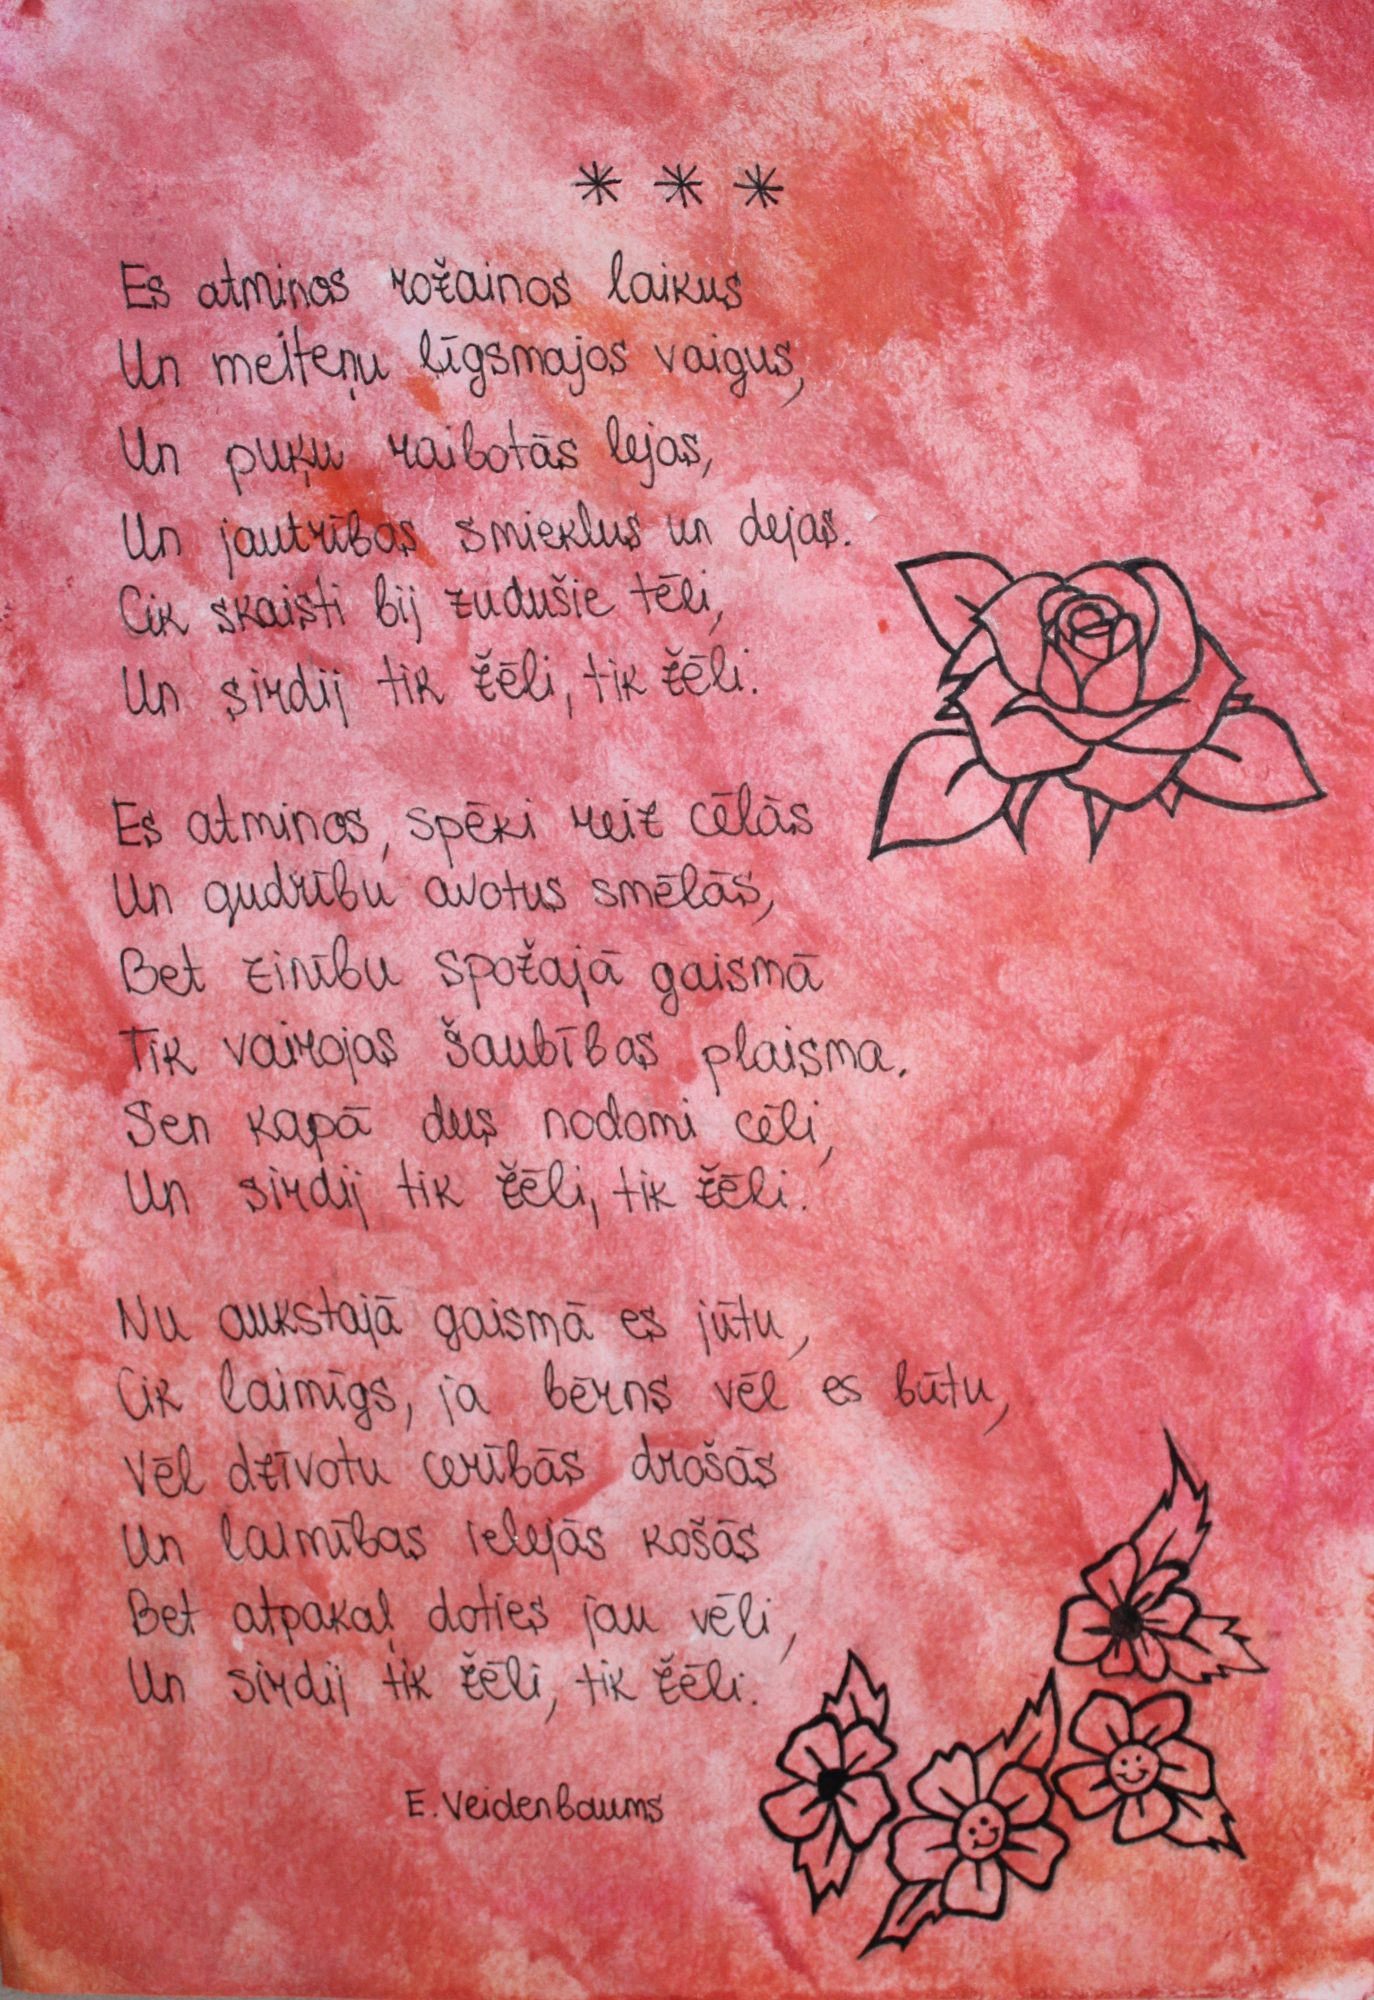 * * *
Es atminos rožainos laikus
Un meiteņu līgsmajos vaigus,
Un puķu raibotās lejas,
Un jautrības smieklus un dejas.
Cik skaisti bij zudušie tēli,
Un sirdij tik žēli, tik žēli.
Es atminos, spēki reiz cēlās
Un gudrību avotus smēlās,
Bet zinību spožajā gaismā
Tik vairojas šaubības plaisma.
Sen kapā dus nodomi cēli,
Un sirdij tik žēli, tik žēli.
Nu aukstajā gaismā es jūtu,
Cik laimīgs, ja bērns vēl es būtu,
Vēl dzīvotu cerībās drošās
Un laimības ielejās košās
Bet atpakaļ doties jau vēli,
Un sirdij tik žēli, tik žēli.
E. Veidenbaums